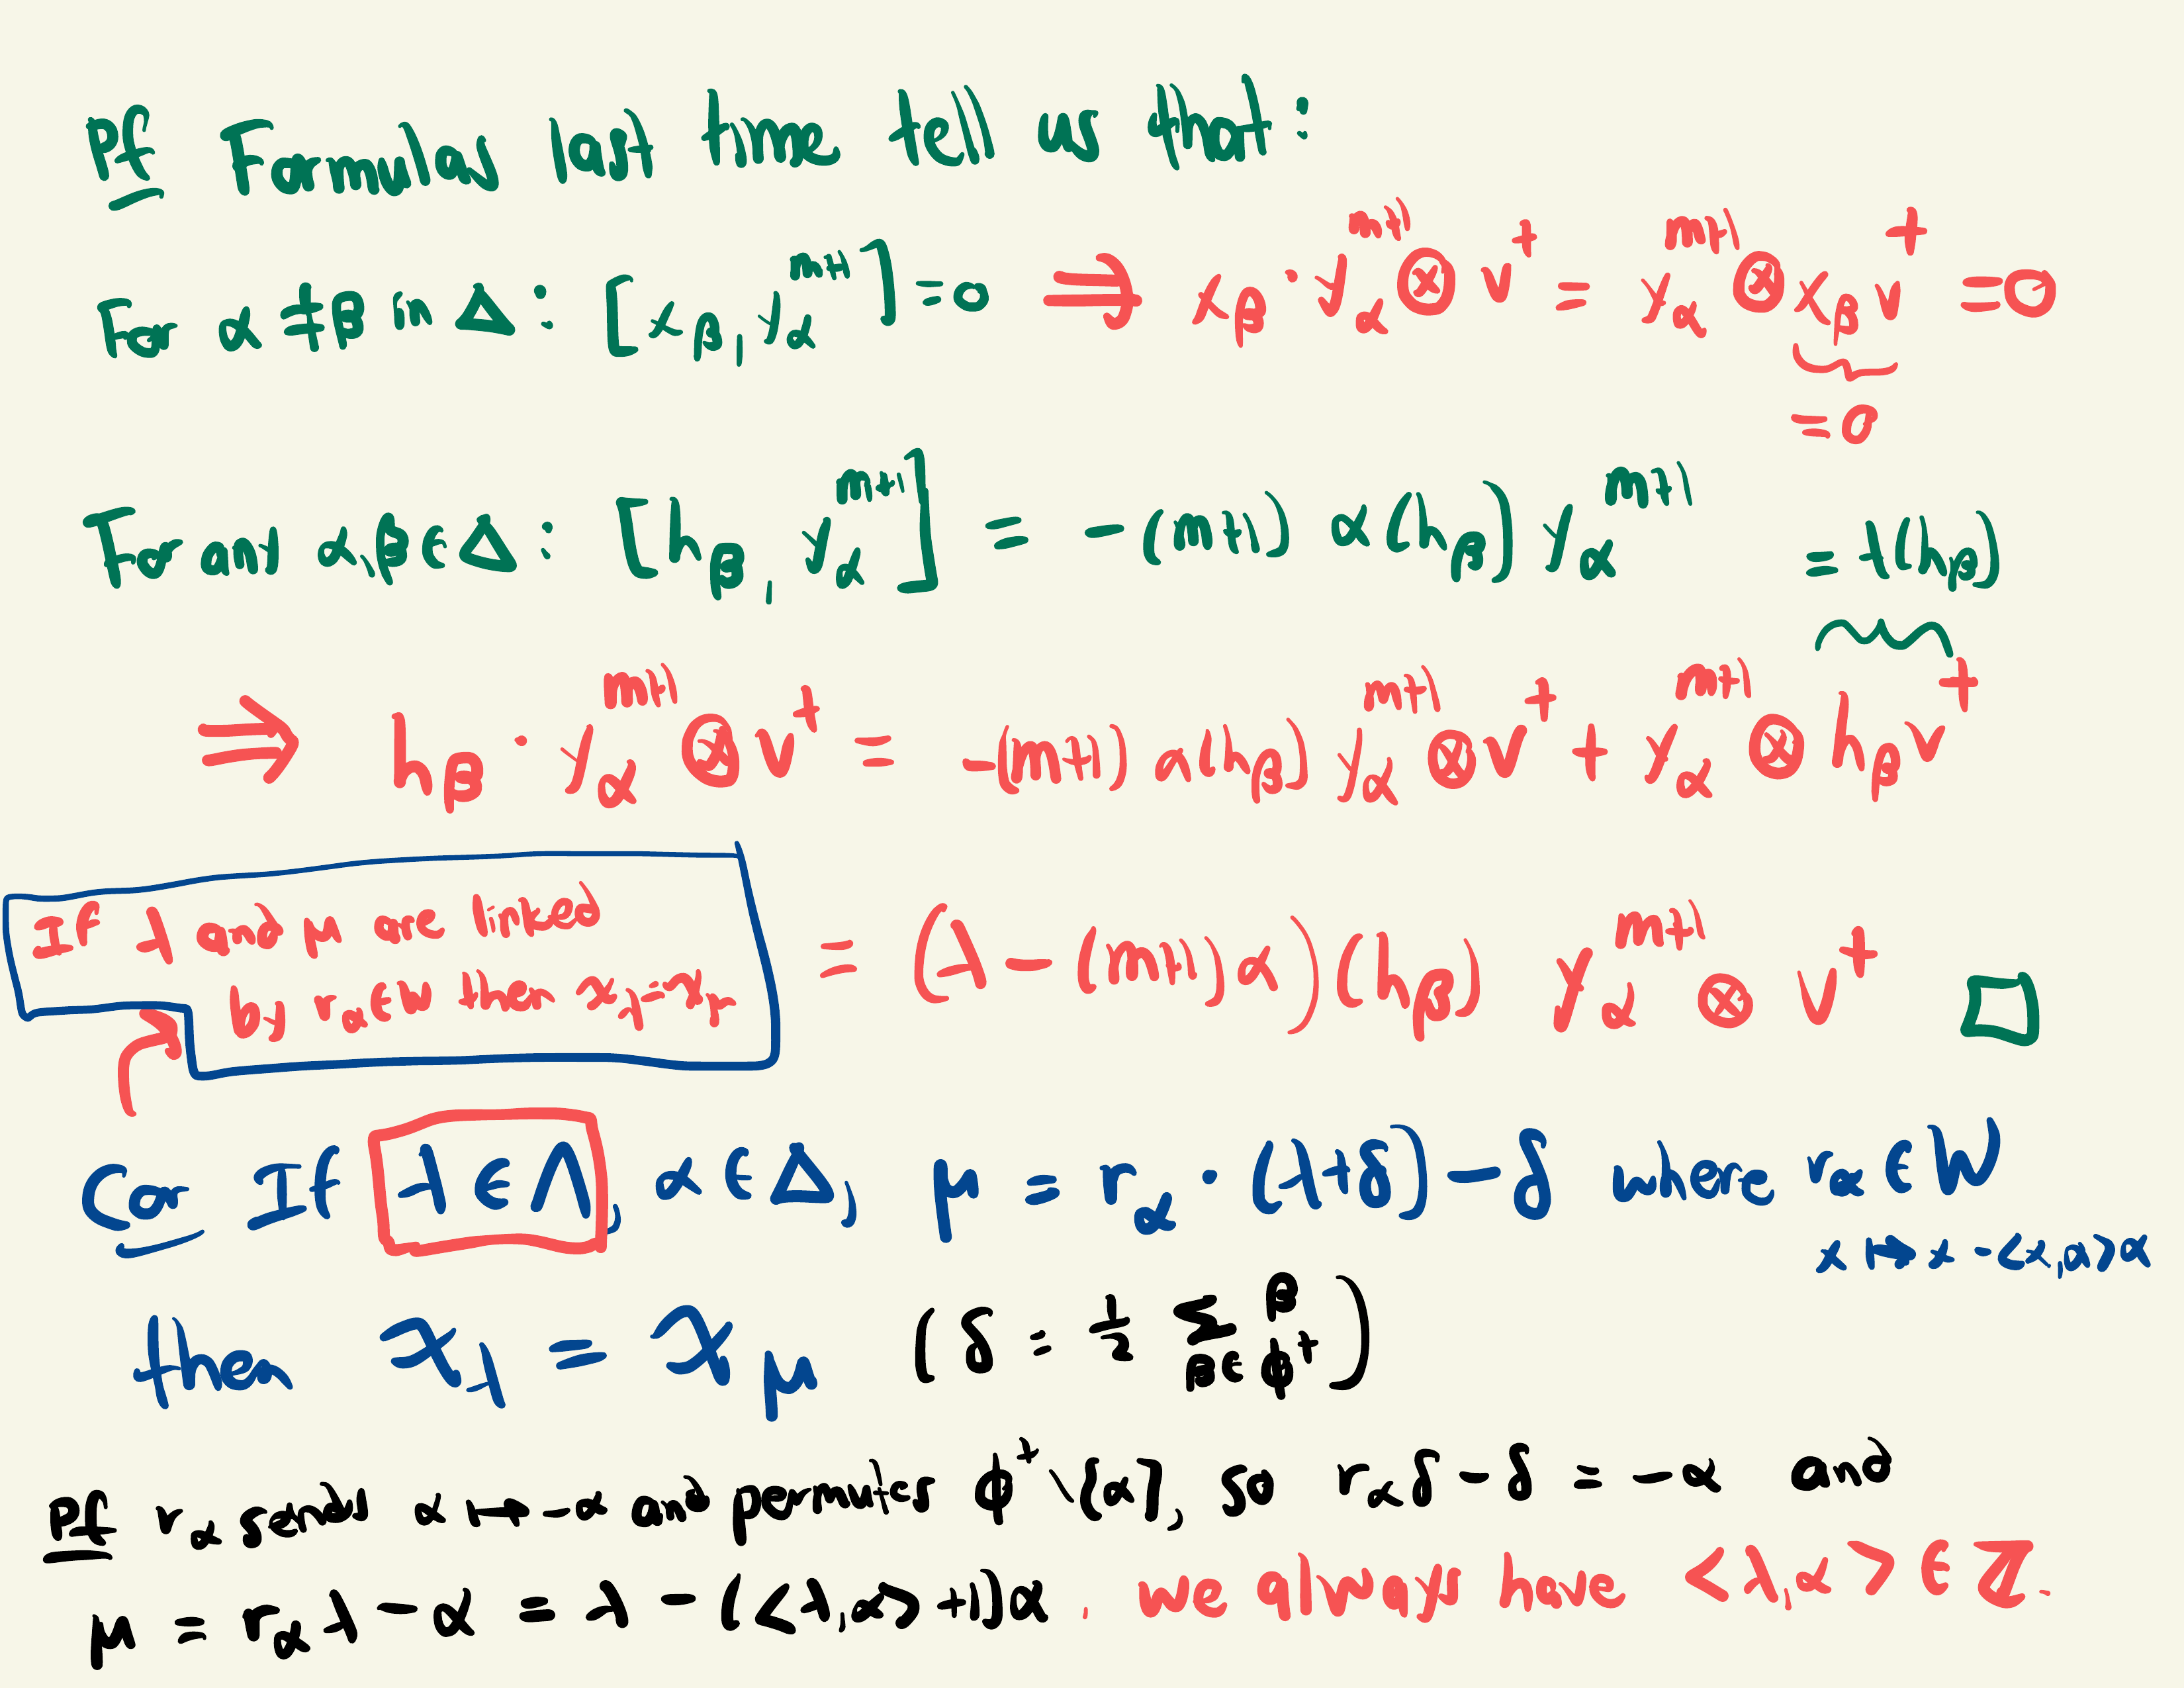 Pf Formulas last time tell us that:
For α ≠ β in Δ: [x_β, y_α^{m+1}] = 0 ⟹ x_β · y_α^{m+1} ⊗ v^+ = y_α^{m+1} ⊗ x_β v^+ = 0
= 0
For any α, β ∈ Δ: [h_β, y_α^{m+1}] = -(m+1) α(h_β) y_α^{m+1}
= λ(h_β)
⟹ h_β · y_α^{m+1} ⊗ v^+ = -(m+1) α(h_β) y_α^{m+1} ⊗ v^+ + y_α^{m+1} ⊗ h_β v^+
If λ and μ are linked
by r_α ∈ W then χ_λ = χ_μ
= (λ - (m+1)α)(h_β) y_α^{m+1} ⊗ v^+ □
Cor If λ ∈ Λ, α ∈ Δ, μ = r_α · (λ+δ) - δ where r_α ∈ W
x ↦ x - <x,α>α
then χ_λ = χ_μ (δ = ½ Σ_{β∈Φ^+} β)
Pf r_α sends α ↦ -α and permutes Φ^+ \ {α}, so r_α δ - δ = -α and
μ = r_α λ - α = λ - (<λ,α> + 1)α. We always have <λ,α> ∈ ℤ.